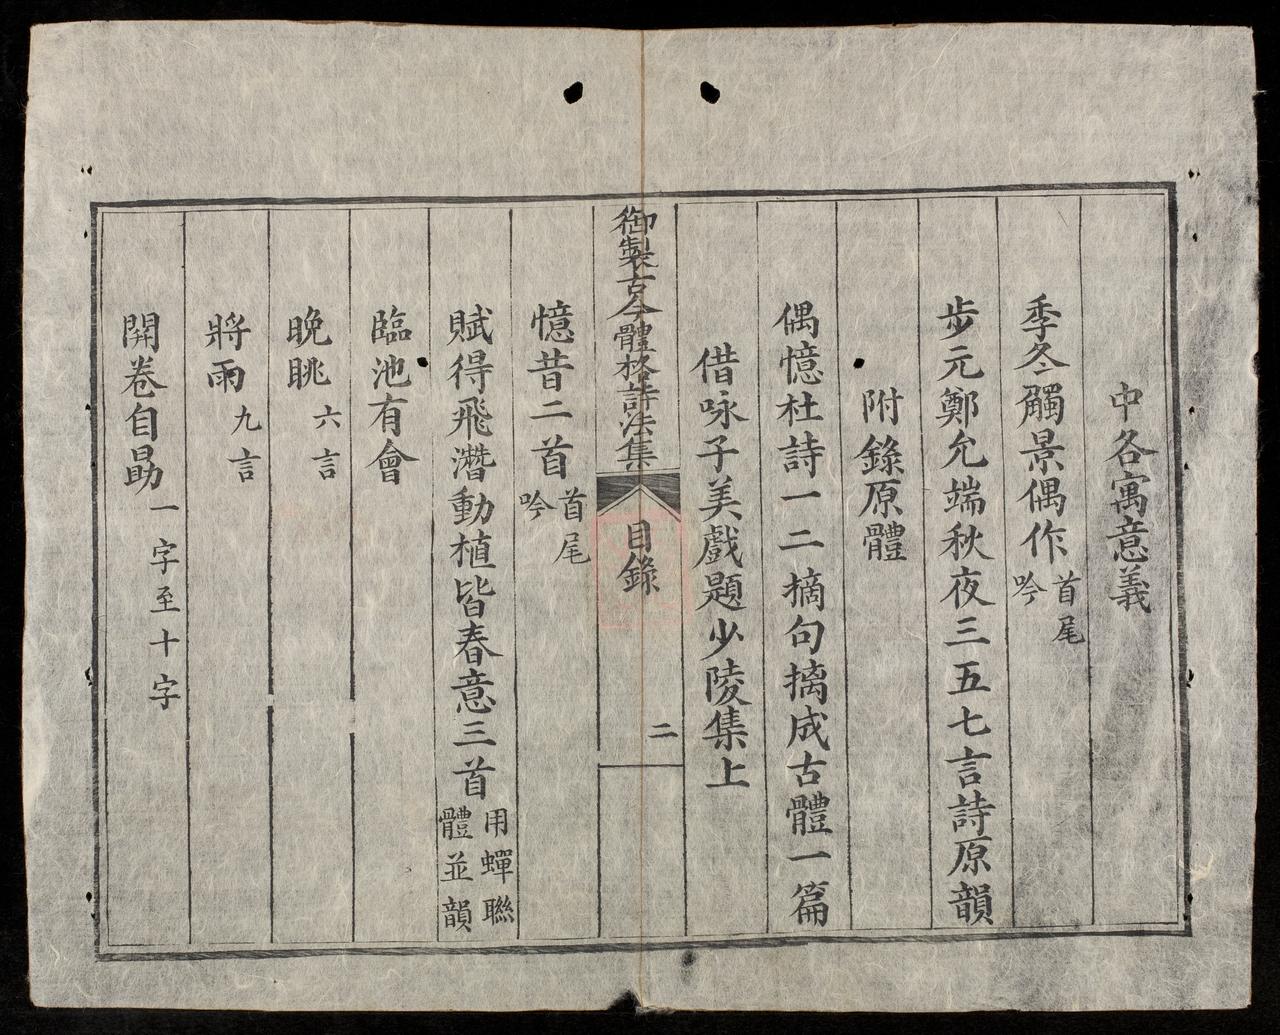 中各寓意義
季冬觸景偶作首尾吟
步元鄭允端秋夜三五七言詩原韻
附錄原體
偶憶杜詩一二摘句摛成古體一篇
借咏子美戲題少陵集上
御製古今體格詩法集 目錄 二
憶昔二首首尾吟
賦得飛潛動植皆春意三首用蟬聯體並韻
臨池有會
晚眺六言
將雨九言
開卷自勗一字至十字